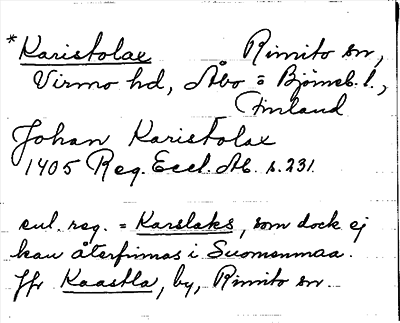 *Karistolax Rimito sn,
Virmo hd, Åbo = Björneb. l.,
Finland
Johan Karistolax
1405 Reg. Eccl. Ab. s. 231.
enl. reg. = Karslaks, som dock ej
kan återfinnas i Suomenmaa.
Jfr Kaastla, by, Rimito sn